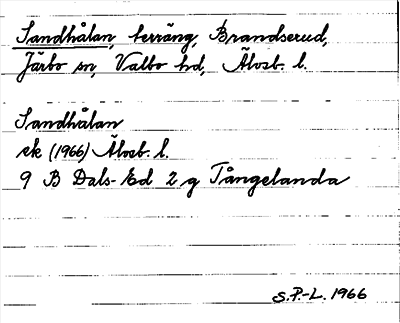 Sandhålan, terräng, Brandserud,
Järbo sn, Valbo hd, Älvsb. l.
Sandhålan
ek (1966) Älvsb. l.
9 B Dals-Ed 2 g Tångelanda
S.P.-L. 1966